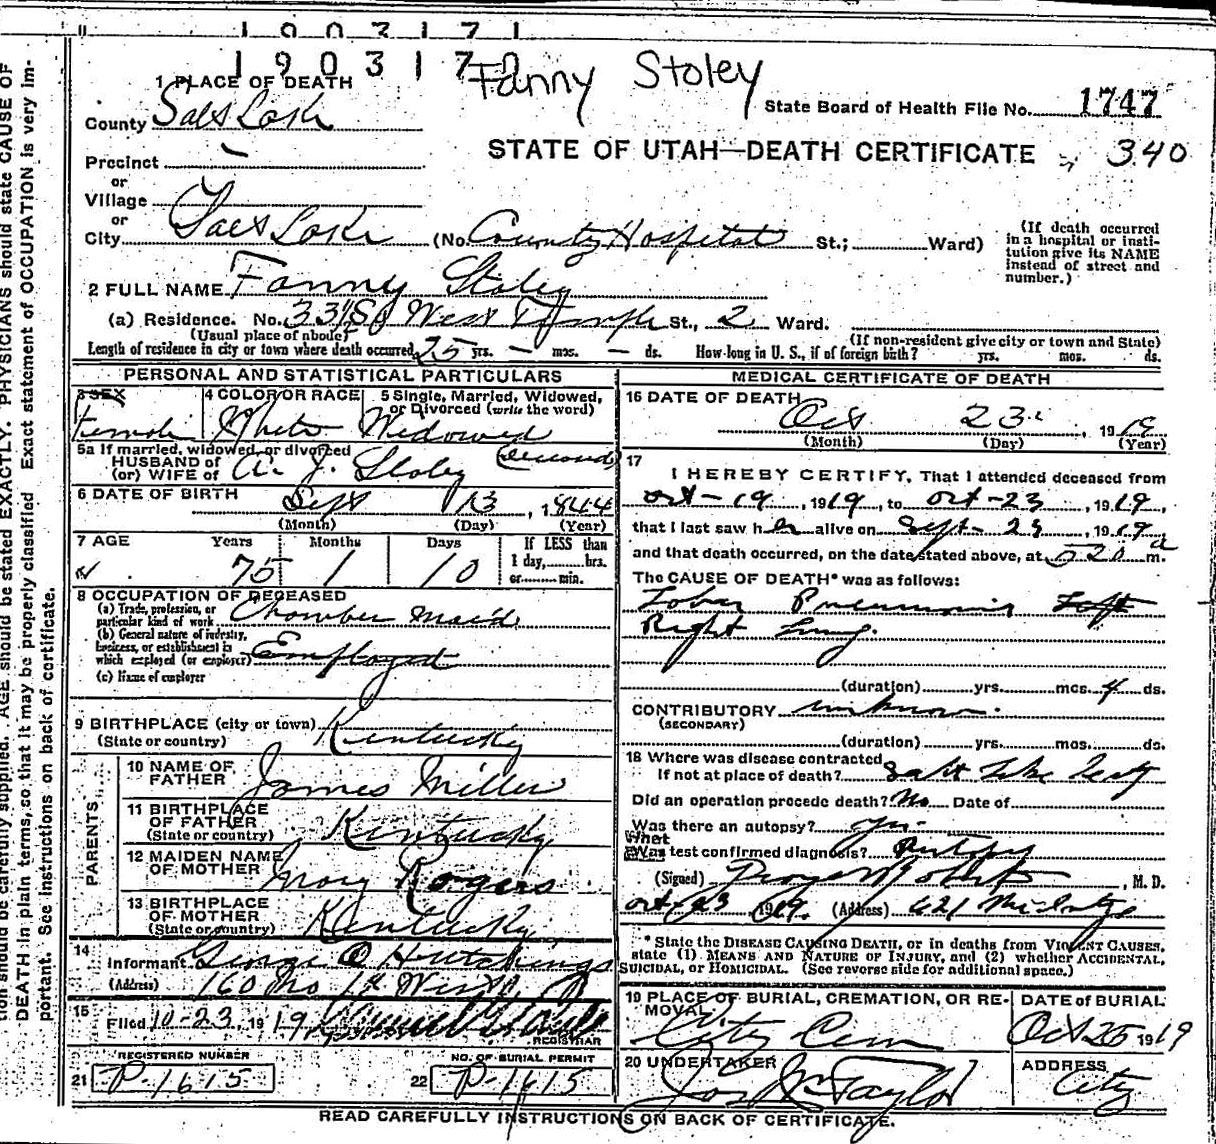 1 9 0 3 1 7 1
1 9 0 3 1 7
Fanny Stoley
1 PLACE OF DEATH
State Board of Health File No. 1747
County Salt Lake
STATE OF UTAH—DEATH CERTIFICATE 340
Precinct
or
Village
or
City Salt Lake (No. County Hospital St.; Ward)
(If death occurred in a hospital or insti-
tution give its NAME
instead of street and
number.)
2 FULL NAME Fanny Stoley
(a) Residence. No. 331 So West Temple St., 2 Ward.
(Usual place of abode)
(If non-resident give city or town and State)
Length of residence in city or town where death occurred 25 yrs. — mos. — ds. How long in U. S., if of foreign birth? yrs. mos. ds.
PERSONAL AND STATISTICAL PARTICULARS
3 SEX
Female
4 COLOR OR RACE
White
5 Single, Married, Widowed,
or Divorced (write the word)
Widowed
5a If married, widowed, or divorced
HUSBAND of
(or) WIFE of A. J. Stoley (second)
6 DATE OF BIRTH
Sept 13, 1844
(Month) (Day) (Year)
7 AGE Years Months Days
75 1 10
If LESS than
1 day, hrs.
or min.
8 OCCUPATION OF DECEASED
(a) Trade, profession, or
particular kind of work Chamber Maid
(b) General nature of industry,
business, or establishment in
which employed (or employer) Employed
(c) Name of employer
9 BIRTHPLACE (city or town) Kentucky
(State or country)
PARENTS
10 NAME OF
FATHER James Miller
11 BIRTHPLACE
OF FATHER Kentucky
(State or country)
12 MAIDEN NAME
OF MOTHER Mary Rogers
13 BIRTHPLACE
OF MOTHER Kentucky
(State or country)
14
Informant George O Hutchings
(Address) 160 No 1st West
15
Filed 10-23, 1919
REGISTRAR
REGISTERED NUMBER
21 P-1615
NO. OF BURIAL PERMIT
22 P-1615
MEDICAL CERTIFICATE OF DEATH
16 DATE OF DEATH
Oct 23, 1919
(Month) (Day) (Year)
17
I HEREBY CERTIFY, That I attended deceased from
Oct-19, 1919, to Oct-23, 1919,
that I last saw her alive on Sept-23, 1919
and that death occurred, on the date stated above, at 520 a m.
The CAUSE OF DEATH* was as follows:
Lobar Pneumonia Left
Right Lung.
(duration) yrs. mos. 4 ds.
CONTRIBUTORY unknown.
(SECONDARY)
(duration) yrs. mos. ds.
18 Where was disease contracted
If not at place of death? Salt Lake County
Did an operation precede death? No Date of
Was there an autopsy? yes
What
Was test confirmed diagnosis? Autopsy
(Signed) , M. D.
Oct 23 1919. (Address) 621
* State the DISEASE CAUSING DEATH, or in deaths from VIOLENT CAUSES,
state (1) MEANS AND NATURE OF INJURY, and (2) whether ACCIDENTAL,
SUICIDAL, or HOMICIDAL. (See reverse side for additional space.)
19 PLACE OF BURIAL, CREMATION, OR RE-
MOVAL
City Cem
DATE of BURIAL
Oct 25 1919
20 UNDERTAKER
Jos Wm Taylor
ADDRESS
City
READ CAREFULLY INSTRUCTIONS ON BACK OF CERTIFICATE.
tion should be carefully supplied. AGE should be stated EXACTLY. PHYSICIANS should state CAUSE OF
DEATH in plain terms, so that it may be properly classified. Exact statement of OCCUPATION is very im-
portant. See instructions on back of certificate.